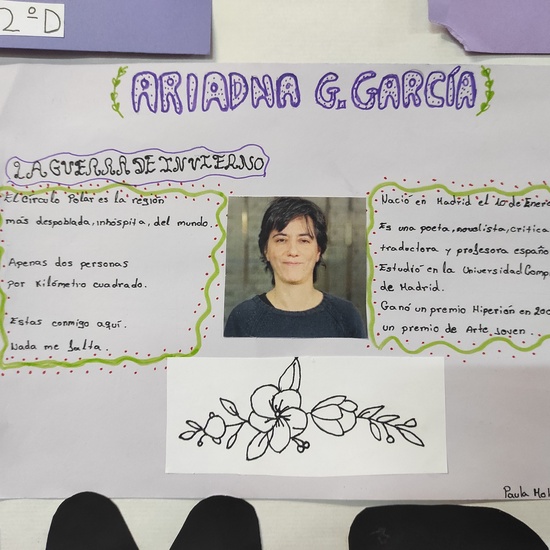 2ºD
ARIADNA G. GARCÍA
LA GUERRA DE INVIERNO
El Círculo Polar es la región
más despoblada, inhóspita, del mundo.
Apenas dos personas
por Kilómetro cuadrado.
Estas conmigo aquí.
Nada me falta.
Nació en Madrid el 10 de Enero
Es una poeta, novelista, crítica
traductora y profesora españo
Estudió en la Universidad Comp
de Madrid.
Ganó un premio Hiperión en 200
un premio de Arte Joven.
Paula Mol